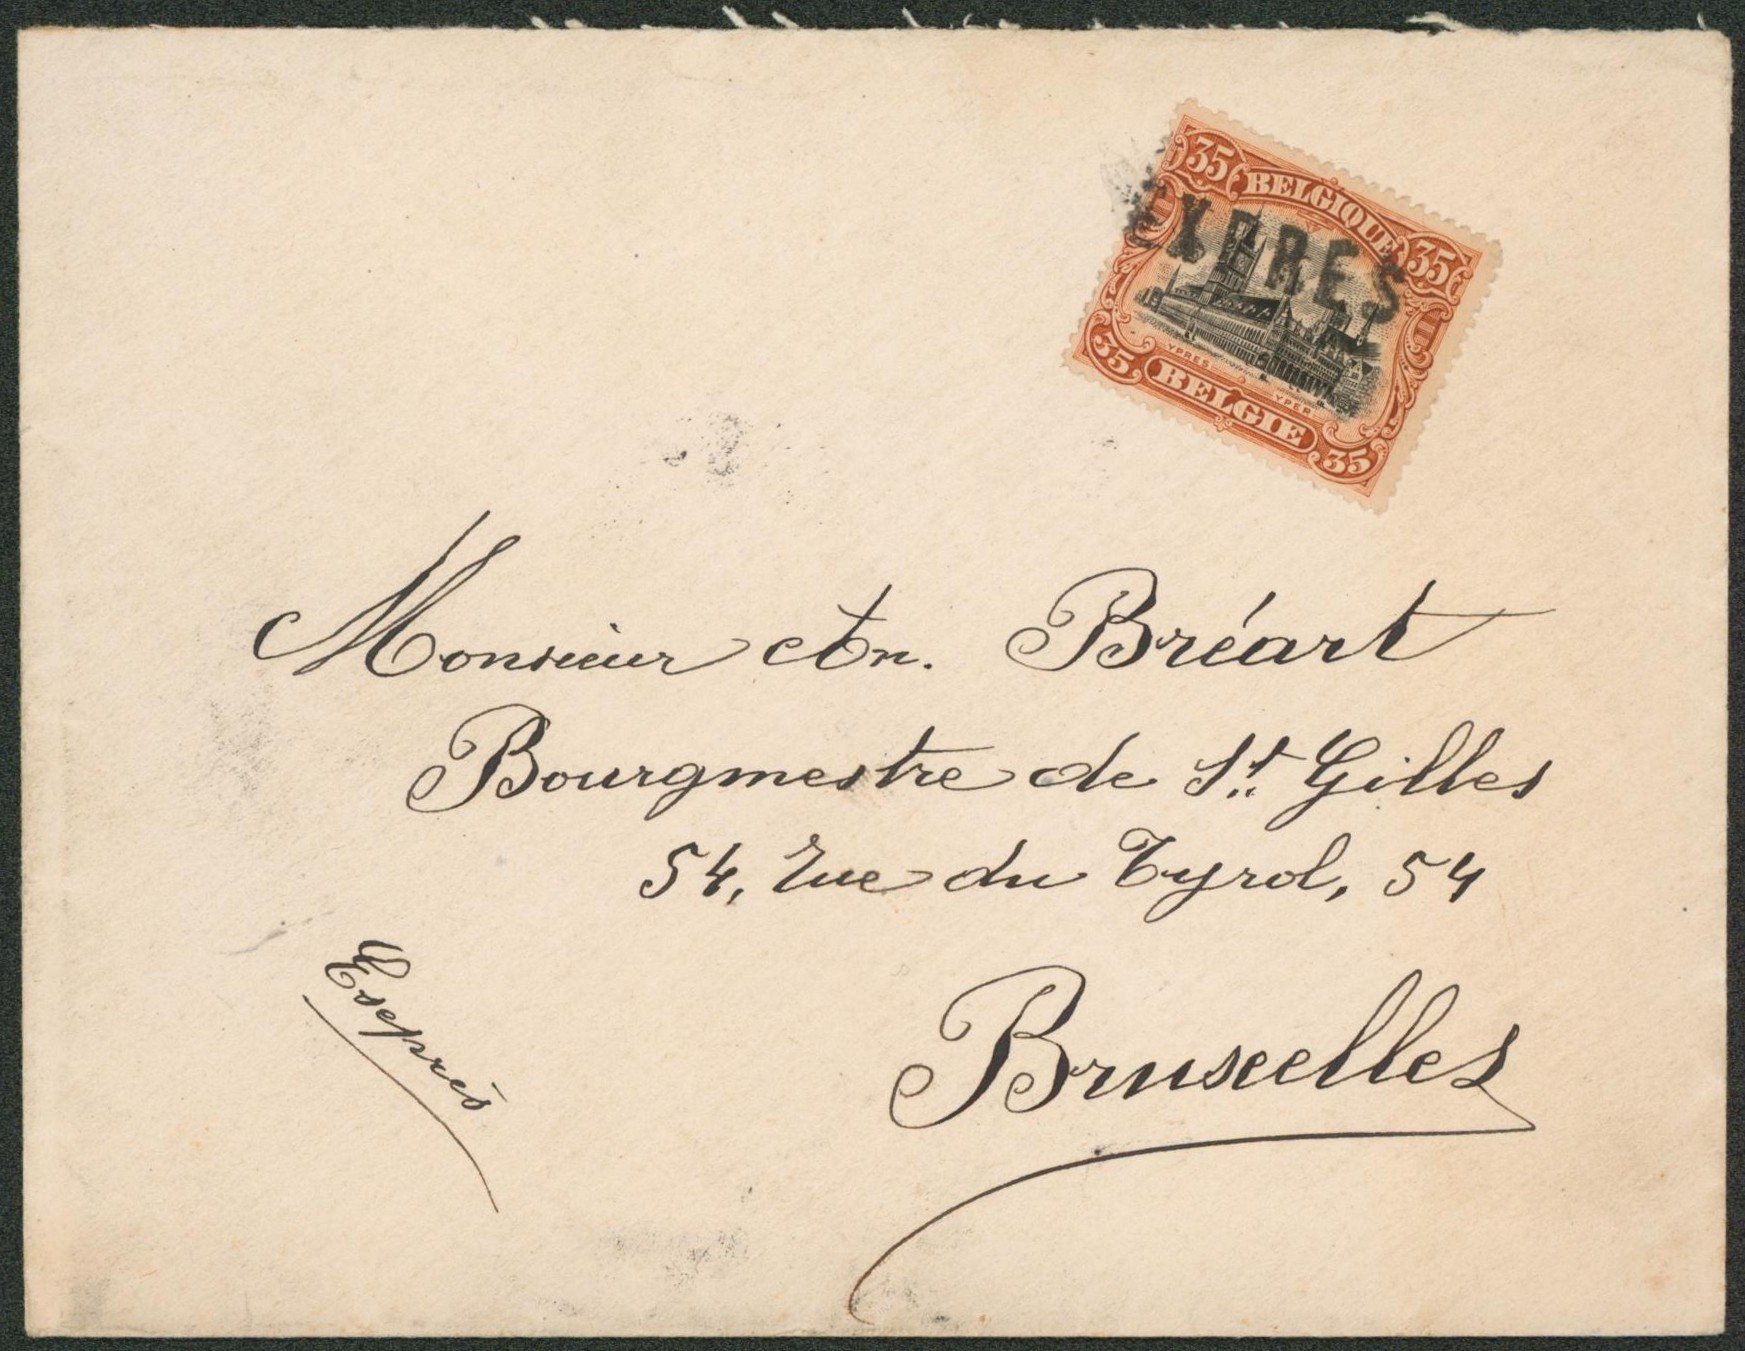 35 BELGIQUE 35
EXPRES
YPRES YPER
35 BELGIE 35
Monsieur An. Bréart
Bourgmestre de St. Gilles
54, rue du Tyrol, 54
Exprès
Bruxelles